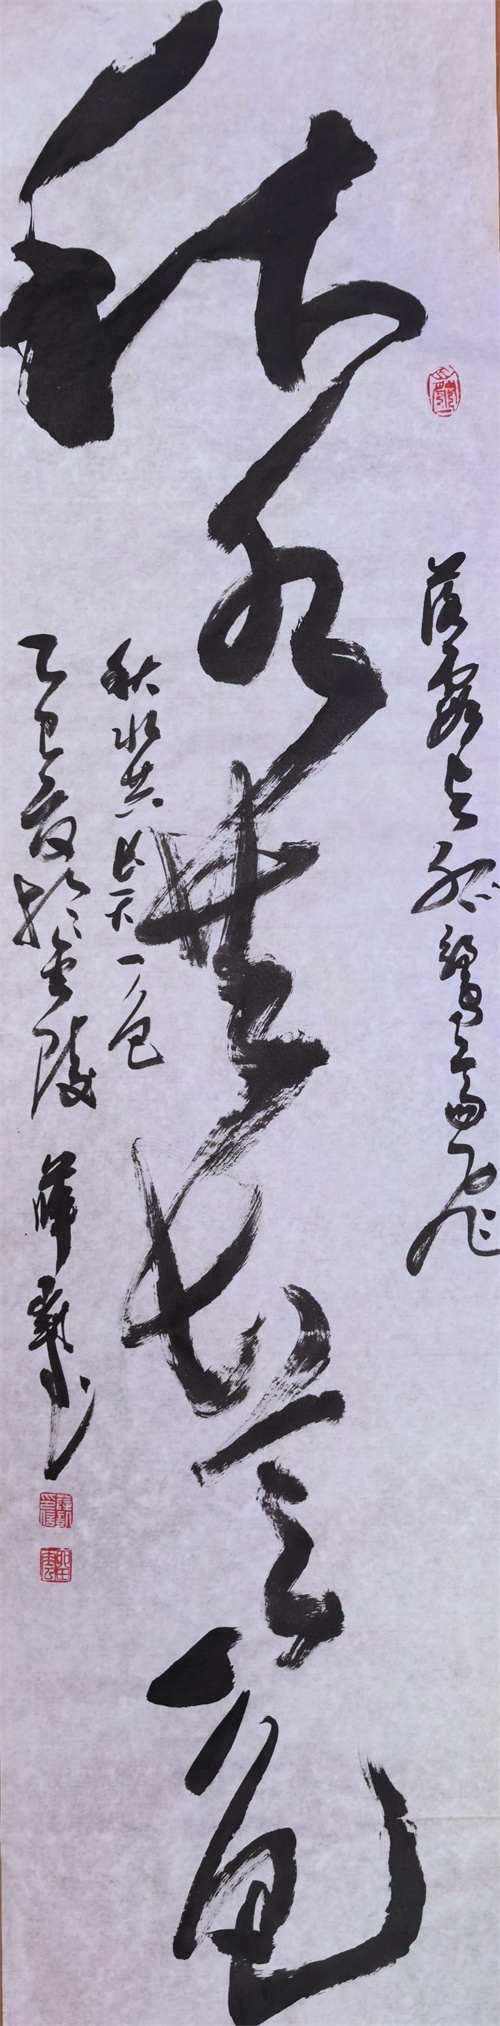 落霞与孤鹜齐飞
秋水共长天一色
秋水共长天一色
乙巳夏于金陵 薛